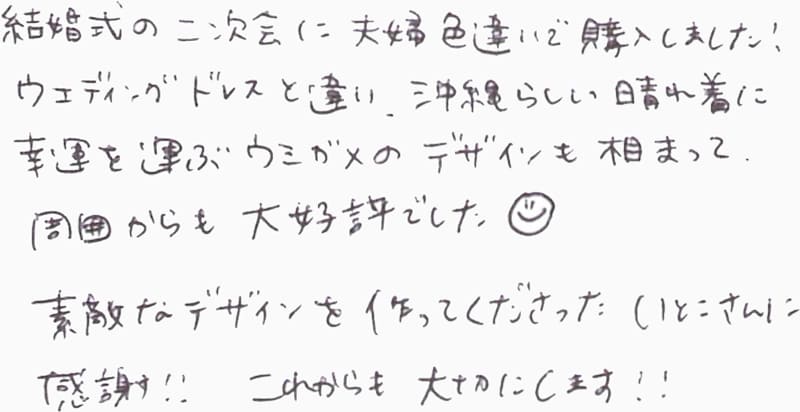 結婚式の二次会に夫婦色違いで購入しました!
ウェディングドレスと違い、沖縄らしい晴れ着に
幸運を運ぶウミガメのデザインも相まって、
周囲からも大好評でした
素敵なデザインを作ってくださったいとこさんに
感謝!! これからも大切にします!!